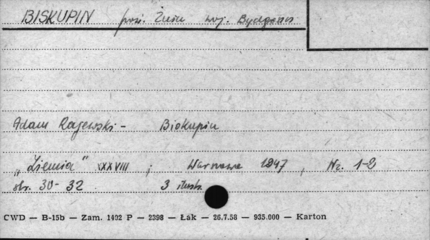 BISKUPIN pow. Żnin woj. Bydgoszcz
Adam Rajewski - Biskupin
"Ziemia" XXVIII ; Warszawa 1947, Nr. 1-2
str. 30-32 3 ilustr.
CWD — B-15b — Zam. 1402 P — 2398 — Łak — 26.7.58 — 935.000 — Karton